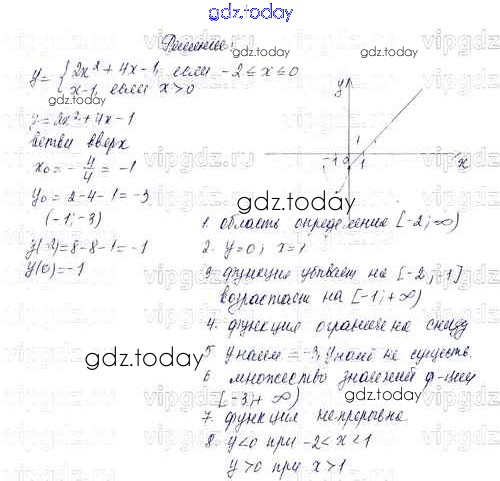 gdz.today
Решение:
y = { 2x² + 4x - 1, если -2 ≤ x ≤ 0
x - 1, если x > 0
y = 2x² + 4x - 1
ветви вверх
x₀ = - 4/4 = -1
y₀ = 2 - 4 - 1 = -3
(-1; -3)
y(-2) = 8 - 8 - 1 = -1
y(0) = -1
y
-1 0 1 x
1
1. область определения [-2; ∞)
2. y = 0; x = 1
3. функция убывает на [-2; -1]
возрастает на [-1; +∞)
4. функция ограничена снизу
5. y наим = -3, y наиб не существ.
6. множество значений ф-ции
[-3; +∞)
7. функция непрерывна
8. y < 0 при -2 < x < 1
y > 0 при x > 1
gdz.today
gdz.today
gdz.today
gdz.today
gdz.today
gdz.today